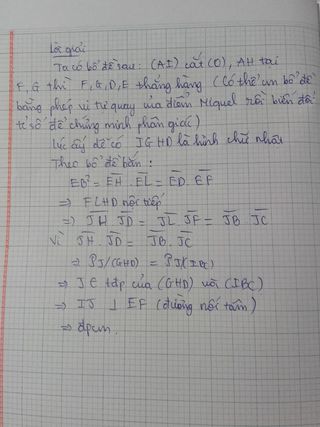 Lời giải
Ta có bổ đề sau: (AI) cắt (O), AH tại
F, G thì F, G, D, E thẳng hàng (Có thể cm bổ đề
bằng phép vị tự quay của điểm Miquel rồi biến đổi
tỉ số để chứng minh phân giác)
Lúc ấy dễ có JGHD là hình chữ nhật
Theo bổ đề bên:
ED² = EH . EL = ED . EF
⇒ FLHD nội tiếp
⇒ JH . JD = JL . JF = JB . JC
Vì JH . JD = JB . JC
⇒ PJ/(GHD) = PJ/(IBC)
⇒ J ∈ tđp của (GHD) với (IBC)
⇒ IJ ⊥ EF (đường nối tâm)
⇒ đpcm.